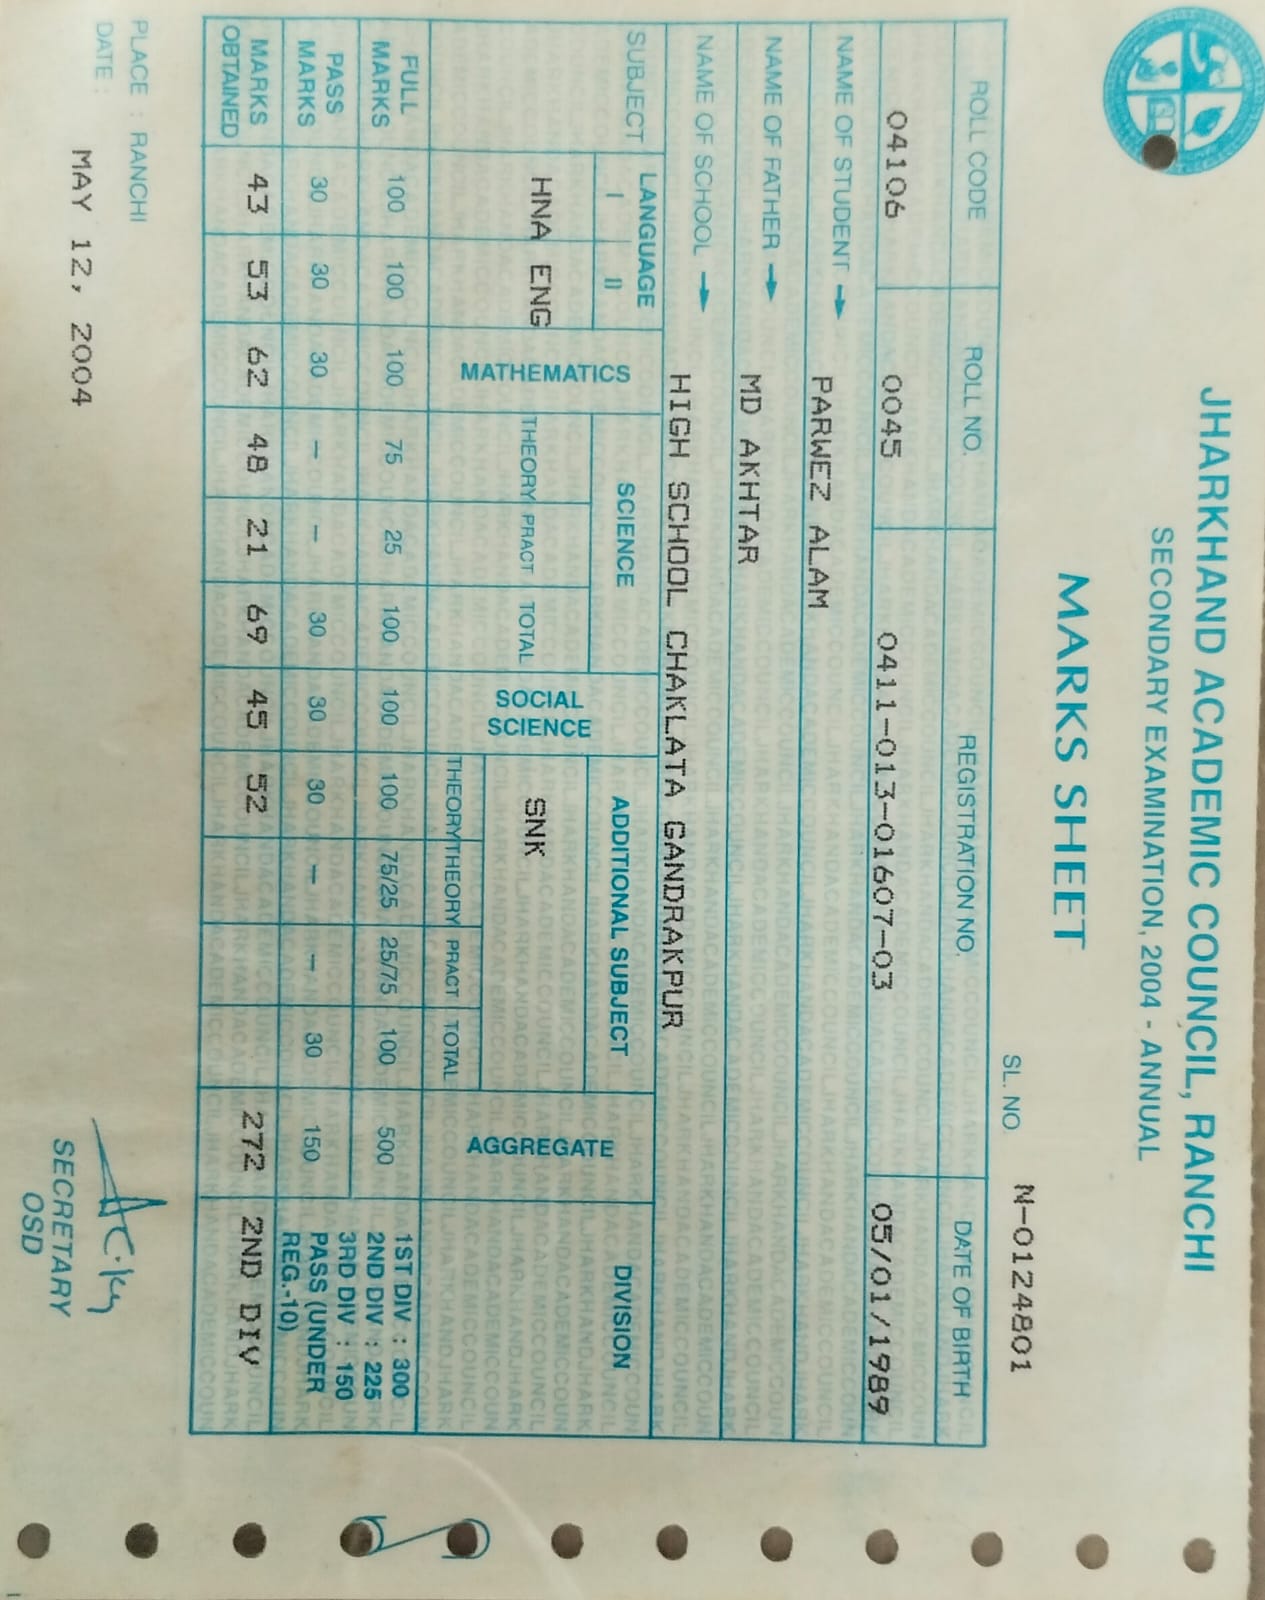 JHARKHAND ACADEMIC COUNCIL, RANCHI
SECONDARY EXAMINATION, 2004 - ANNUAL
MARKS SHEET
SL. NO. N-0124801
ROLL CODE ROLL NO. REGISTRATION NO. DATE OF BIRTH
04106 0045 0411-013-01607-03 05/01/1989
NAME OF STUDENT → PARWEZ ALAM
NAME OF FATHER → MD AKHTAR
NAME OF SCHOOL → HIGH SCHOOL CHAKLATA GANDRAKPUR
SUBJECT LANGUAGE MATHEMATICS SCIENCE SOCIAL SCIENCE ADDITIONAL SUBJECT AGGREGATE DIVISION
I II
HNA ENG THEORY PRACT TOTAL SNK
THEORY THEORY PRACT TOTAL
FULL MARKS 100 100 100 75 25 100 100 100 75/25 25/75 100 500 1ST DIV : 300
2ND DIV : 225
PASS MARKS 30 30 30 – – 30 30 30 – – 30 150 3RD DIV : 150
PASS (UNDER
REG.-10)
MARKS OBTAINED 43 53 62 48 21 69 45 52 272 2ND DIV
PLACE : RANCHI
DATE : MAY 12, 2004
SECRETARY
OSD